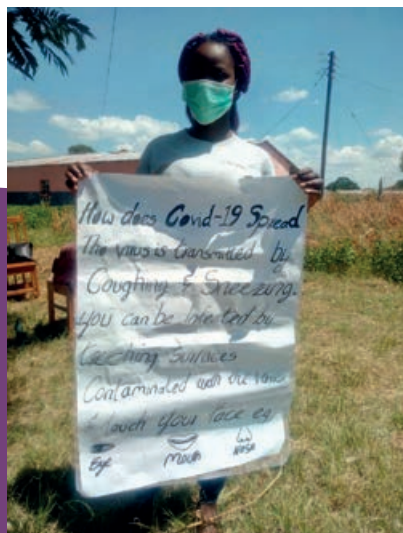 How does Covid-19 Spread
The virus is transmitted by
Coughing & Sneezing.
you can be Infected by
touching Surfaces
Contaminated with the Virus
& touch your face eg
Eye Mouth Nose